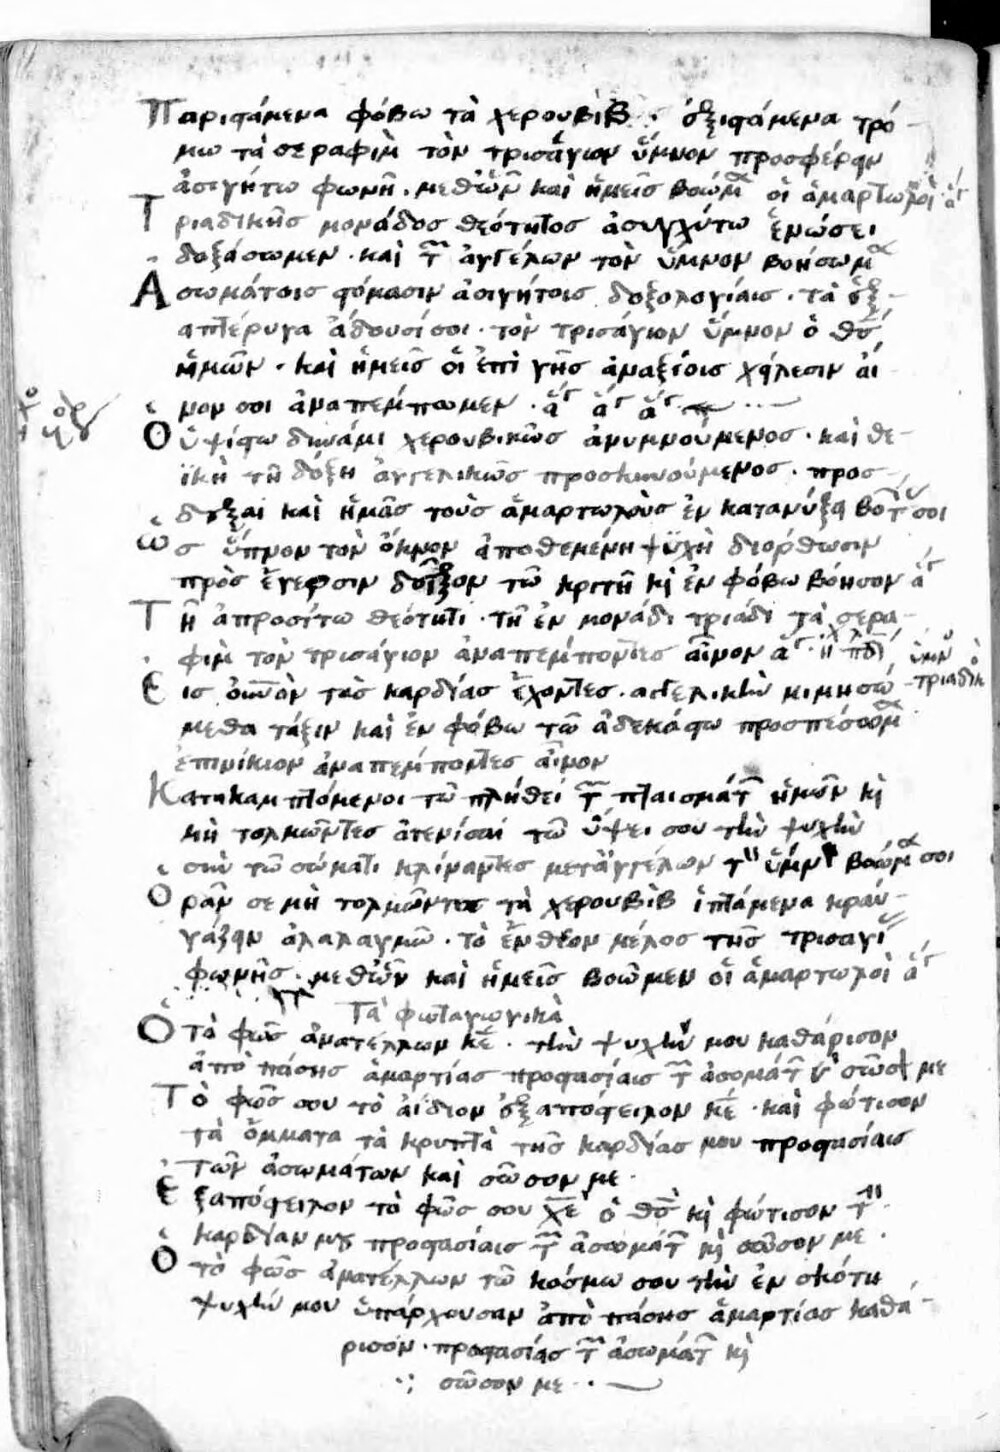 Παριστάμενα φόβω τὰ χερουβὶβ · ἐξιστάμενα τρό-
μω τὰ σεραφὶμ τὸν τρισάγιον ὕμνον προσφέρει
ἀσιγήτω φωνῆ · μεθ' ὧν καὶ ἡμεῖς βοῶμ οἱ ἁμαρτωλοὶ ἅγ
Τριαδικῆς μονάδος θεότητος ἀσυγχύτω ἑνώσει
δοξάσωμεν · καὶ τῶν ἀγγέλων τὸν ὕμνον βοήσωμ
Ἀσωμάτοις στόμασιν ἀσιγήτοις δοξολογίαις · τὰ ἑξ-
απτέρυγα ἄδουσί σοι · τὸν τρισάγιον ὕμνον ὁ θς
ἡμῶν · καὶ ἡμεῖς οἱ ἐπὶ γῆς ἀναξίοις χείλεσιν αἶ-
νον σοι ἀναπέμπωμεν · ἅγ ἅγ ἅγ
Ὁ ὑψίστω δυνάμει χερουβικῶς ἀνυμνούμενος · καὶ θε-
ϊκῆ τῆ δόξη ἀγγελικῶς προσκυνούμενος · προσ-
δεξαι καὶ ἡμᾶς τοὺς ἁμαρτωλοὺς ἐν κατανύξει βοῶντάς σοι
Ὡς ὕπνον τὸν ὄκνον ἀποθεμένη ψυχὴ διόρθωσιν
πρὸς ἔγερσιν δεῖξον τῶ κριτῆ κὶ ἐν φόβω βόησον ἅγ
Τῆ ἀπροσίτω θεότητι · τῆ ἐν μονάδι τριάδι τὰ σερα-
φὶμ τὸν τρισάγιον ἀναπέμποντες αἶνον ἅγ ὕμν
Εἰς οὐνὸν τὰς καρδίας ἔχοντες · ἀγγελικὴν μιμησώ- τριαδικ
μεθα τάξιν καὶ ἐν φόβω τῶ ἀδεκάστω προσπέσωμ
ἐπινίκιον ἀναπέμποντες αἶνον
Κατακαμπτόμενοι τῶ πλήθει τῶν πταισμάτ ἡμῶν κὶ
μὴ τολμῶντες ἀτενίσαι τῶ ὕψει σου τὴν ψυχὴν
σὺν τῶ σώματι κλίναντες μετ' ἀγγέλων τ ὕμν βοῶμ σοι
Ὁρᾶν σε μὴ τολμῶντα τὰ χερουβὶβ ἱπτάμενα κραυ-
γάζει ἀλαλαγμῶ · τὸ ἔνθεον μέλος τῆς τρισαγί
φωνῆς · μεθ' ὧν καὶ ἡμεῖς βοῶμεν οἱ ἁμαρτωλοὶ ἅγ
Τὰ φωταγωγικὰ
Ὁ τὸ φῶς ἀνατέλλων κε · τὴν ψυχήν μου καθάρισον
ἀπὸ πάσης ἁμαρτίας προστασίαις τῶν ἀσωμάτ κὶ σῶσον με
Τὸ φῶς σου τὸ ἀΐδιον ἐξαπόστειλον κε · καὶ φώτισον
τὰ ὄμματα τὰ κρυπτὰ τῆς καρδίας μου προστασίαις
τῶν ἀσωμάτων καὶ σῶσον με ·
Ἐξαπόστειλον τὸ φῶς σου χε ὁ θς κὶ φώτισον τ
καρδίαν μου προστασίαις τῶν ἀσωμάτ κὶ σῶσον με ·
Ὁ τὸ φῶς ἀνατέλλων τῶ κόσμω σου τὴν ἐν σκότη
ψυχήν μου ὑπάρχουσαν ἀπὸ πάσης ἁμαρτίας καθά-
ρισον · προστασίας τῶν ἀσωμάτ κὶ
σῶσον με ·